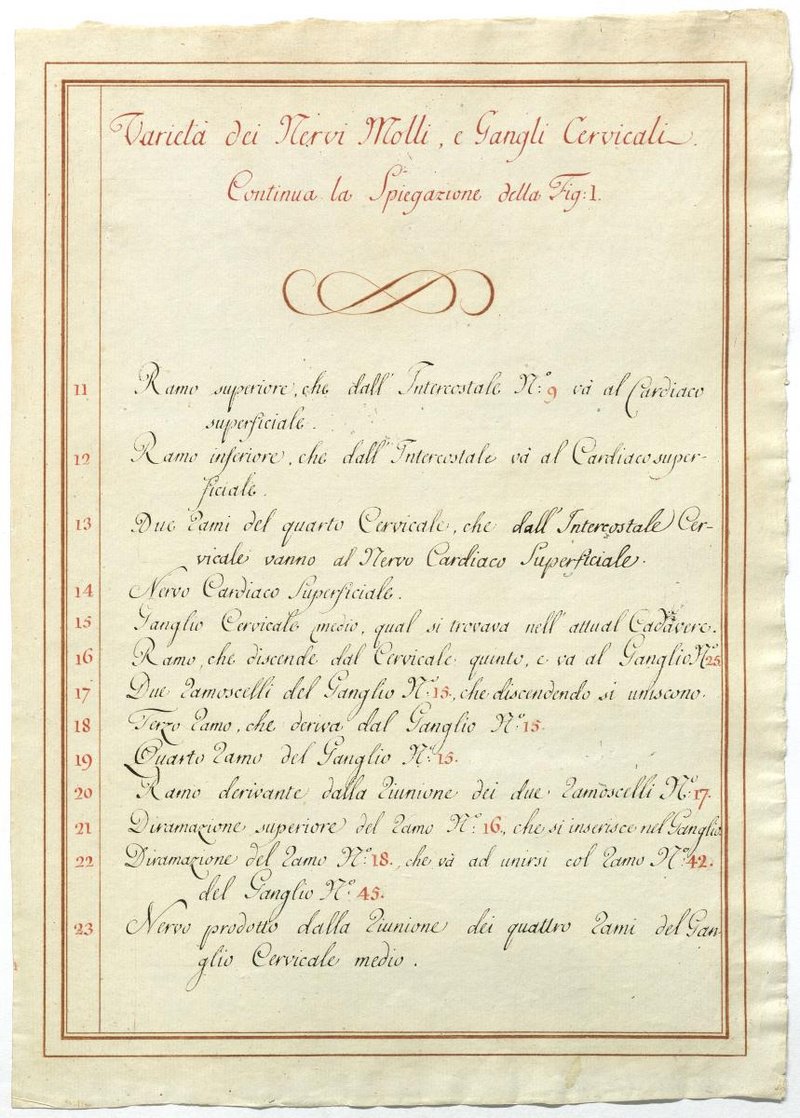 Varietà dei Nervi Molli, e Gangli Cervicali.
Continua la Spiegazione della Fig: 1.
11 Ramo superiore, che dall' Intercostale N.º 9 và al Cardiaco
superficiale.
12 Ramo inferiore, che dall' Intercostale và al Cardiaco super-
ficiale.
13 Due rami del quarto Cervicale, che dall' Intercostale Cer-
vicale vanno al Nervo Cardiaco Superficiale.
14 Nervo Cardiaco Superficiale.
15 Ganglio Cervicale medio, qual si trovava nell' attual Cadavere.
16 Ramo, che discende dal Cervicale quinto, e va al Ganglio N.º 25
17 Due ramoscelli del Ganglio N.º 15., che discendendo si uniscono.
18 Terzo ramo, che deriva dal Ganglio N.º 15.
19 Quarto ramo del Ganglio N.º 15.
20 Ramo derivante dalla riunione dei due ramoscelli N.º 17.
21 Diramazione superiore del ramo N.º 16., che si inserisce nel Ganglio
22 Diramazione del ramo N.º 18., che và ad unirsi col ramo N.º 42.
del Ganglio N.º 45.
23 Nervo prodotto dalla riunione dei quattro rami del Gan-
glio Cervicale medio.